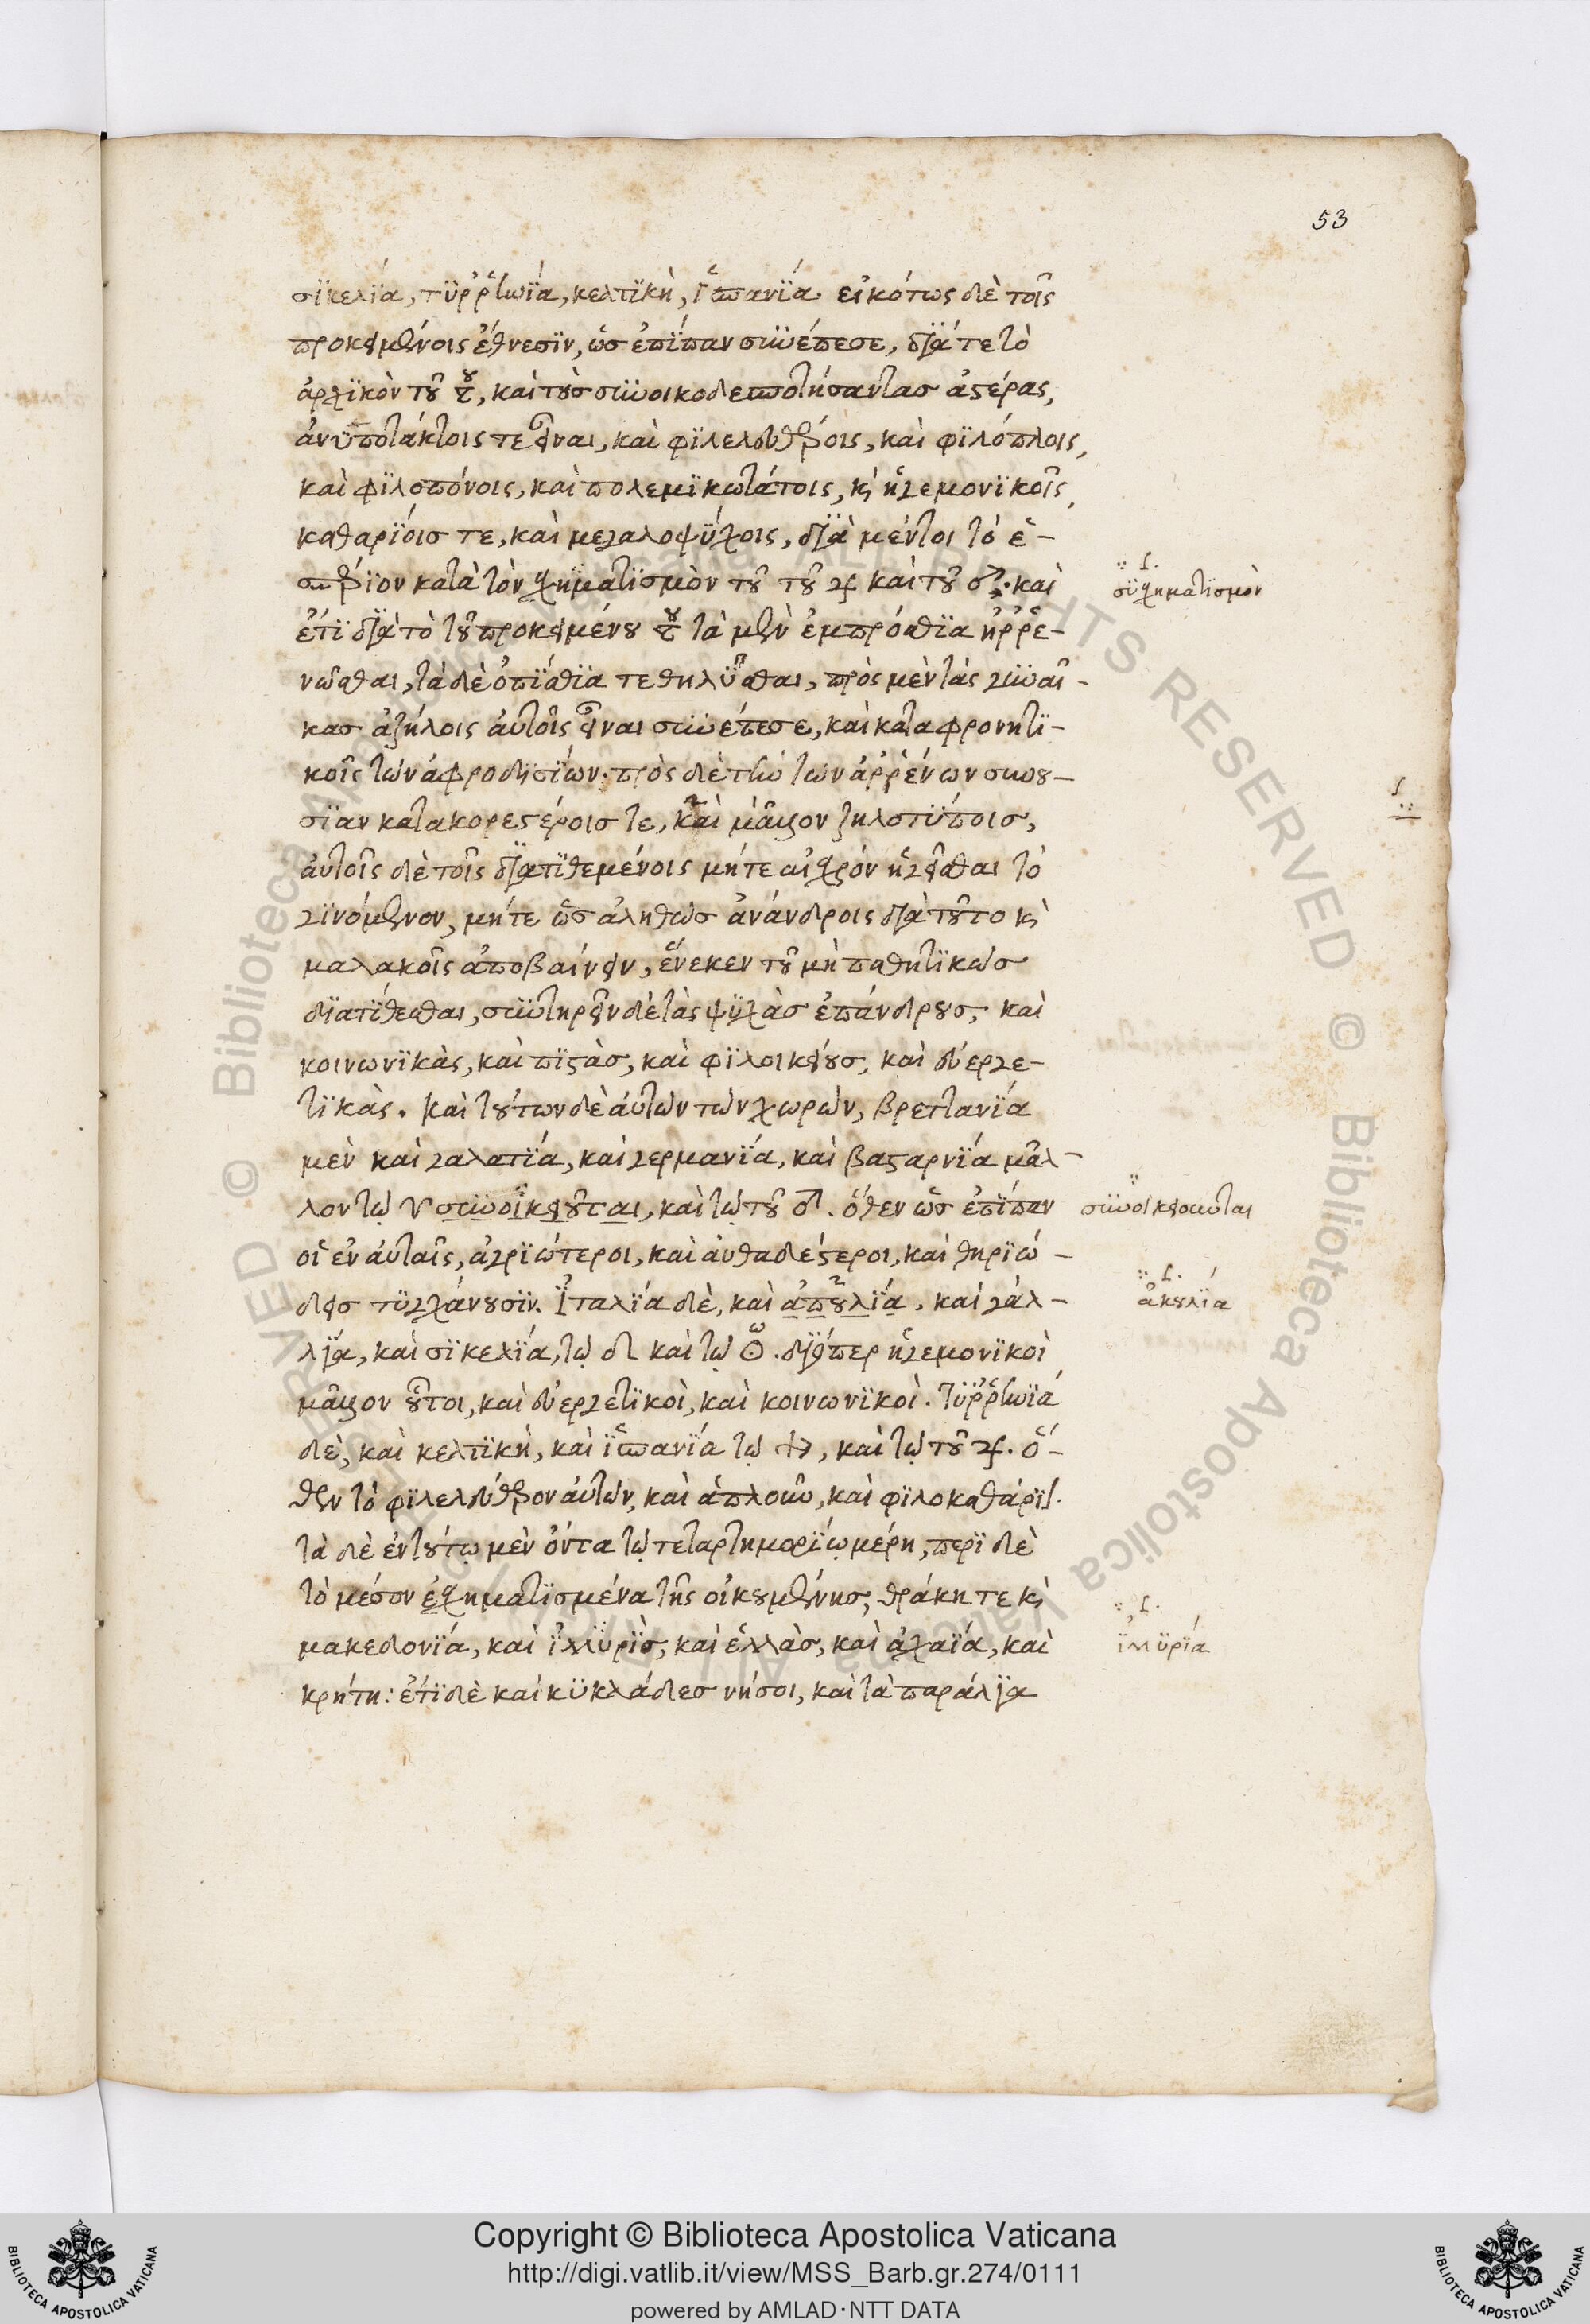 53
σϊκελΐα, τϋῤῥηνΐα, κελτϊκὴ, ἱσπανΐα. εἰκότως δὲ τοῖς
προκειμένοις ἔθνεσϊν, ὡσ ἐπΐπαν συνέπεσε, δϊά τε τὸ
ἀρχϊκὸν τοῦ , καὶ τοὺσ συνοικοδεσποτήσαντασ ἀστέρας,
ἀνϋποτάκτοις τε εἶναι, καὶ φϊλελευθέροις, καὶ φϊλόπλοις,
καὶ φϊλοπόνοις, καὶ πολεμϊκωτάτοις, καὶ ἡγεμονϊκοῖς,
καθαρΐοισ τε, καὶ μεγαλοψΰχοις, δϊὰ μέντοι τὸ ἑ-
σπέρϊον κατὰ τὸν σχηματϊσμὸν τοῦ τοῦ ♃ καὶ τοῦ ♂. καὶ
σϋσχηματϊσμὸν
ἔτϊ δϊὰ τὸ τοῦ προκειμένου τὰ μὲν ἐμπρόσθϊα ἠῤῥε-
νῶσθαι, τὰ δὲ ὀπΐσθϊα τεθηλῦσθαι, πρὸς μὲν τὰς γϋναῖ-
κασ ἀζήλοις ἀυτοῖς εἶναι συνέπεσε, καὶ καταφρονητϊ-
κοῖς τῶν ἀφροδϊσΐων. πρὸς δὲ τὴν τῶν ἀῤῥένων συνου-
σΐαν κατακορεστέροισ τε, καὶ μᾶλλον ζηλοτΰποισ,
ἀυτοῖς δὲ τοῖς δϊατϊθεμένοις μήτε αἰσχρὸν ἡγεῖσθαι τὸ
γϊνόμενον, μήτε ὡσ ἀληθῶσ ἀνάνδροις δϊὰ τοῦτο καὶ
μαλακοῖς ἀποβαίνειν, ἕνεκεν τοῦ μὴ παθητϊκῶσ
δϊατΐθεσθαι, συντηρεῖν δὲ τὰς ψϋχὰσ ἐπάνδρουσ, καὶ
κοινωνϊκὰς, καὶ πϊστὰσ, καὶ φϊλοικείουσ, καὶ εὐεργε-
τϊκὰς. καὶ τούτων δὲ ἀυτῶν τῶν χωρῶν, βρεττανΐα
μὲν καὶ γαλατΐα, καὶ γερμανΐα, καὶ βασταρνΐα μᾶλ-
λον τῷ ♈ συνοικειοῦται, καὶ τῷ τοῦ ♂. ὅθεν ὡσ ἐπΐπαν
συνοικειοῦνται
οἱ ἐν ἀυταῖς, ἀγρϊώτεροι, καὶ ἀυθαδέστεροι, καὶ θηρϊώ-
δεισ τϋγχάνουσϊν. Ἰταλΐα δὲ, καὶ ἀπουλΐα, καὶ γάλ-
ἀκουλΐα
λϊα, καὶ σϊκελΐα, τῷ ♌ καὶ τῷ ☉. δϊόπερ ἡγεμονϊκοὶ
μᾶλλον οὗτοι, καὶ εὐεργετϊκοὶ, καὶ κοινωνϊκοί. τϋῤῥηνΐα
δὲ, καὶ κελτϊκὴ, καὶ ἱσπανΐα τῷ ♐, καὶ τῷ τοῦ ♃. ὅ-
θεν τὸ φϊλελεύθερον ἀυτῶν, καὶ ἁπλοῦν, καὶ φϊλοκαθάρϊον.
τὰ δὲ ἐν τούτῳ μὲν ὄντα τῷ τεταρτημορΐῳ μέρη, περὶ δὲ
τὸ μέσον ἐσχηματϊσμένα τῆς οἰκουμένησ, θράκη τε καὶ
μακεδονΐα, καὶ ἰλλϋρϊὸ, καὶ ἑλλὰσ, καὶ ἀχαΐα, καὶ
ἰλλϋρΐα
κρήτη: ἔτϊ δὲ καὶ κϋκλάδεσ νήσοι, καὶ τὰ παράλϊα
Copyright © Biblioteca Apostolica Vaticana
http://digi.vatlib.it/view/MSS_Barb.gr.274/0111
powered by AMLAD·NTT DATA